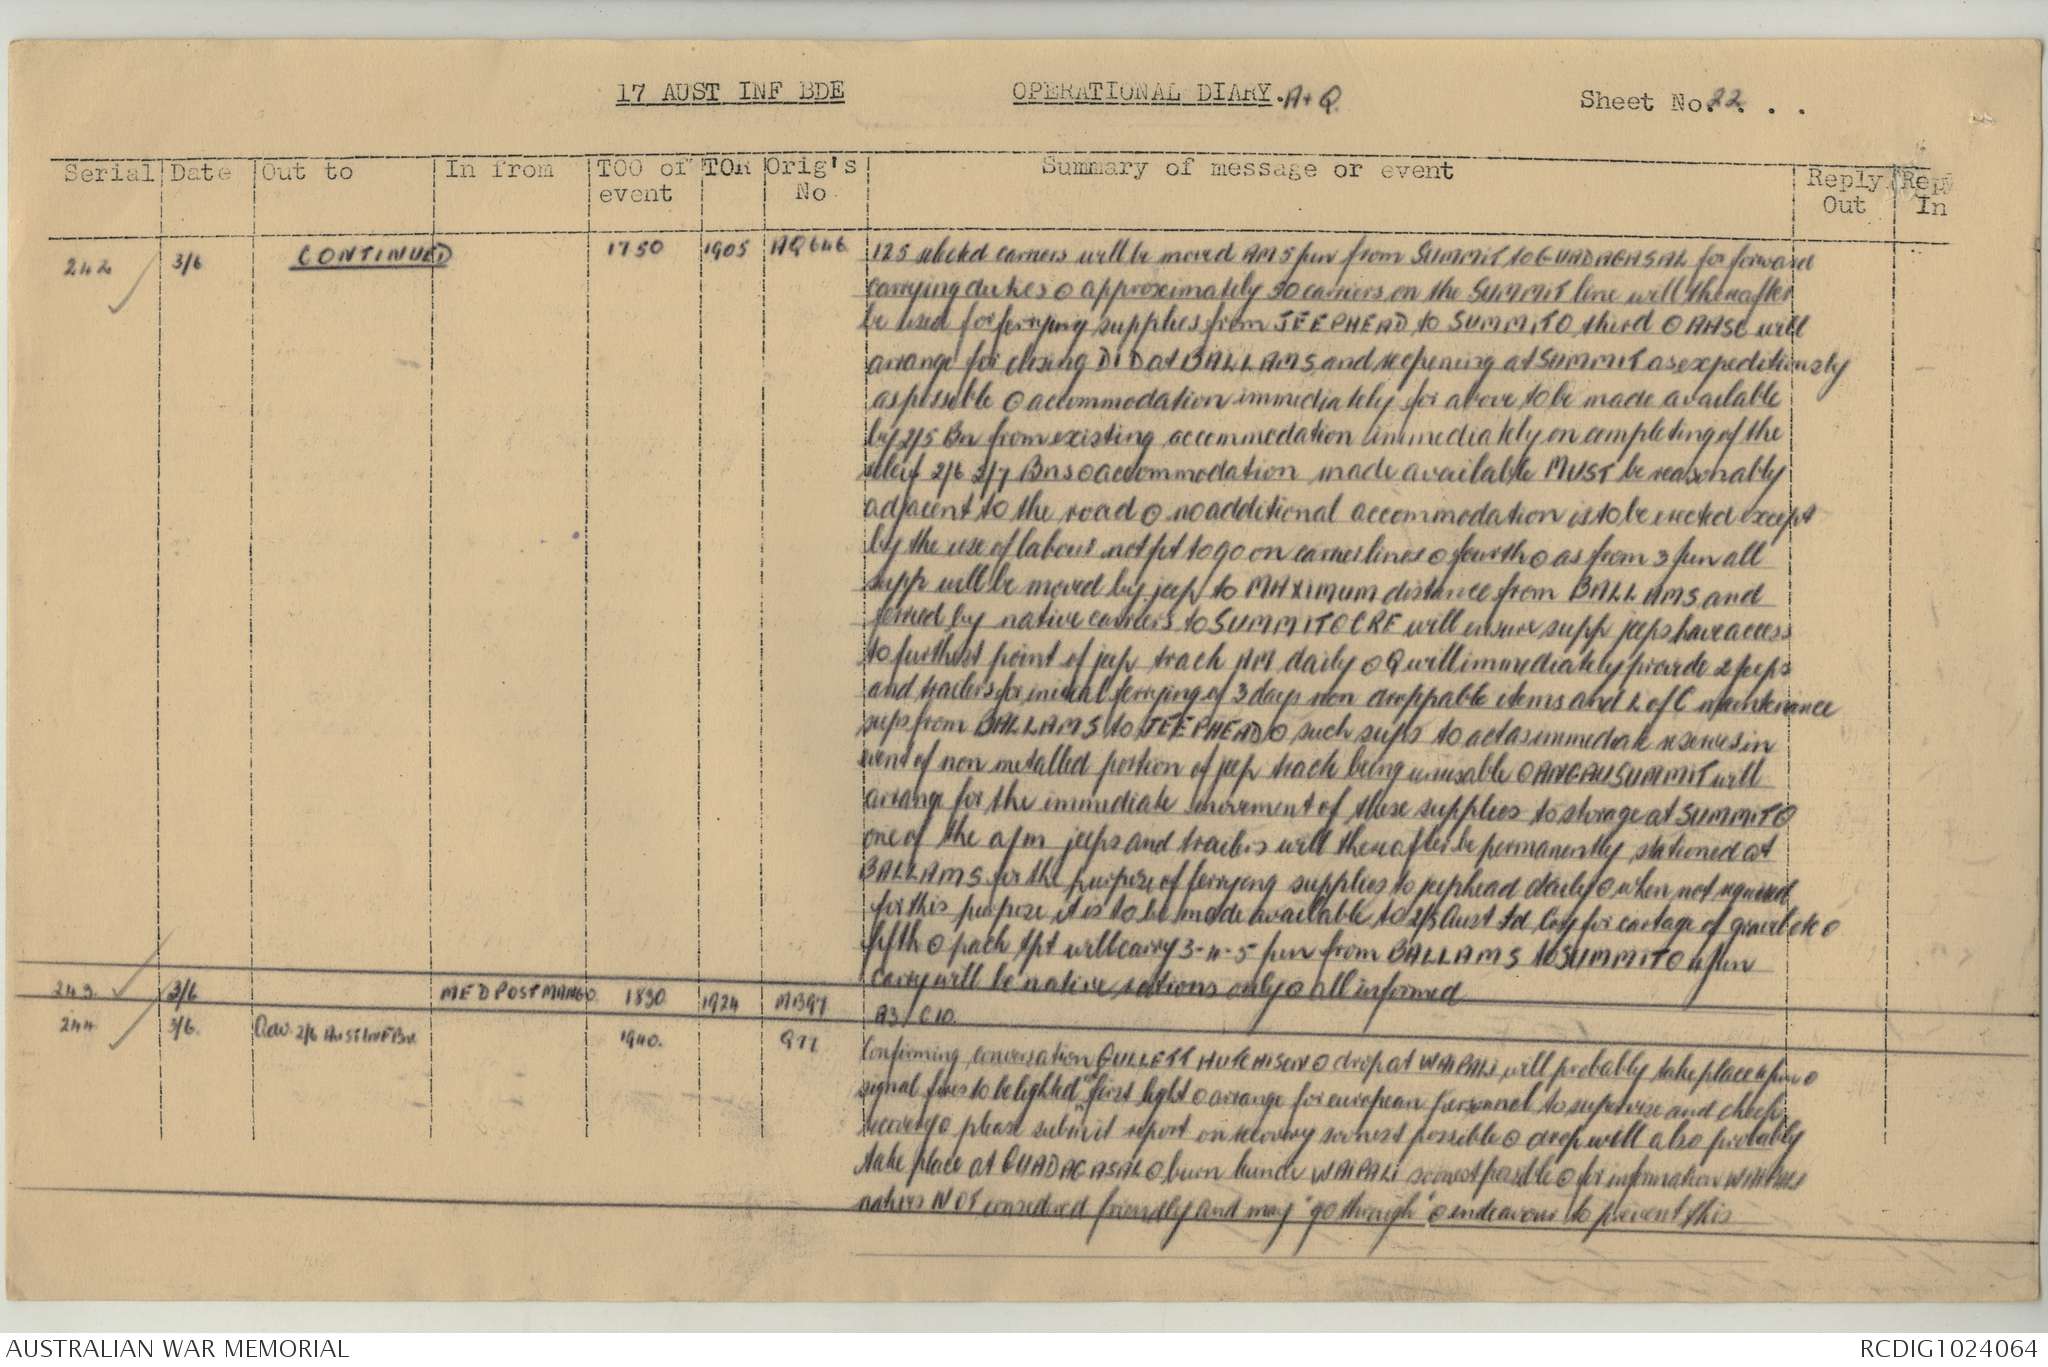 17 AUST INF BDE OPERATIONAL DIARY. A+Q. Sheet No. 22 . . .
Serial Date Out to In from TOO of event TOR Orig's No Summary of message or event Reply Out Reply In
242 3/6 CONTINUED 1750 1905 AQ646 125 selected carriers will be moved AM 5 jun from SUMMIT to GUADAGASAL for forward
carrying duties ⊙ approximately 50 carriers on the SUMMIT line will thereafter
be used for ferrying supplies from JEEPHEAD to SUMMIT ⊙ third ⊙ AASC will
arrange for closing DID at BALLAMS and reopening at SUMMIT as expeditiously
as possible ⊙ accommodation immediately for above to be made available
by 2/5 Bn from existing accommodation immediately on completing of the
relief 2/6 2/7 Bns ⊙ accommodation made available MUST be reasonably
adjacent to the road ⊙ no additional accommodation is to be erected except
by the use of labour not fit to go on carrier lines ⊙ fourth ⊙ as from 3 jun all
supp will be moved by jeep to MAXIMUM distance from BALLAMS and
ferried by native carriers to SUMMIT ⊙ CRE will ensure supp jeeps have access
to furthest point of jeep track AM daily ⊙ Q will immediately provide 2 jeeps
and trailers for initial ferrying of 3 days non droppable items and L of C maintenance
sups from BALLAMS to JEEPHEAD ⊙ such sups to act as immediate reserves in
event of non metalled portion of jeep track being unusable ⊙ ANGAU SUMMIT will
arrange for the immediate movement of these supplies to storage at SUMMIT ⊙
one of the afm jeeps and trailers will thereafter be permanently stationed at
BALLAMS for the purpose of ferrying supplies to jeephead daily ⊙ when not required
for this purpose it is to be made available to 2/5 Aust Fd Coy for cartage of gravel etc ⊙
fifth ⊙ pack tpt will carry 3-4-5 jun from BALLAMS to SUMMIT ⊙ 6 jun
carry will be native rations only ⊙ all informed
243 3/6 MED POST MANGO 1830 1924 MB97 A3/C10.
244 3/6. 2/6 AUST INF BN 1940. Q77 Confirming conversation GULLETT HUTCHISON ⊙ drop at WAIPALI will probably take place 6 jun ⊙
signal fires to be lighted first light ⊙ arrange for european personnel to supervise and check
recovery ⊙ please submit report on recovery soonest possible ⊙ drop will also probably
take place at GUADAGASAL ⊙ burn kunai WAIPALI soonest possible ⊙ for information WAIPALI
natives NOT considered friendly and may "go through" ⊙ endeavour to prevent this
AUSTRALIAN WAR MEMORIAL RCDIG1024064